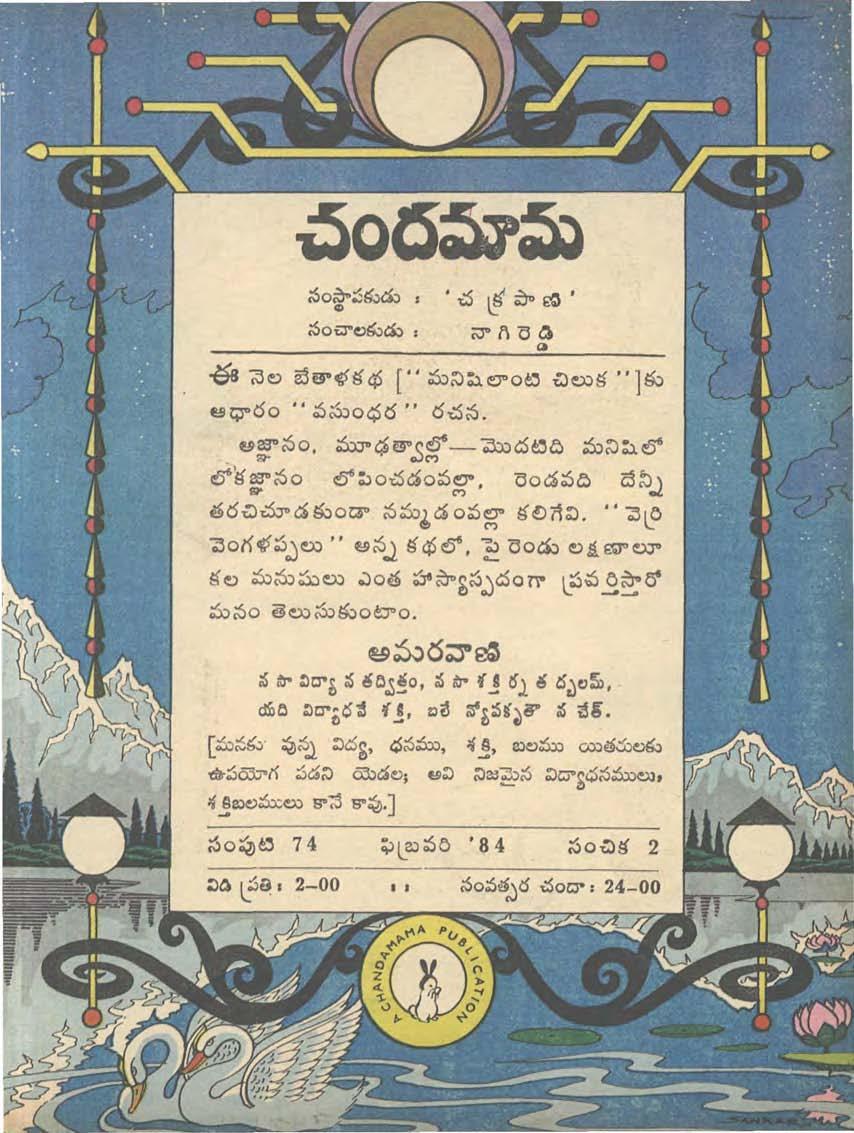 చందమామ
సంస్థాపకుడు : ' చ క్ర పా ణి '
సంచాలకుడు : నా గి రె డ్డి
ఈ నెల బేతాళకథ ["మనిషిలాంటి చిలుక"]కు
ఆధారం "వసుంధర" రచన.
అజ్ఞానం, మూఢత్వాల్లో — మొదటిది మనిషిలో
లోకజ్ఞానం లోపించడంవల్లా, రెండవది దేన్నీ
తరచిచూడకుండా నమ్మడంవల్లా కలిగేవి. "వెర్రి
వెంగళప్పలు" అన్న కథలో, పై రెండు లక్షణాలూ
కల మనుషులు ఎంత హాస్యాస్పదంగా ప్రవర్తిస్తారో
మనం తెలుసుకుంటాం.
అమరవాణి
న సా విద్యా న తద్విత్తం, న సా శక్తి ర్న త ద్బలమ్,
యది విద్యాధనే శక్తి, బలే న్యోపకృతౌ న చేత్.
[మనకు వున్న విద్య, ధనము, శక్తి, బలము యితరులకు
ఉపయోగ పడని యెడల; అవి నిజమైన విద్యాధనములు,
శక్తిబలములు కానే కావు.]
సంపుటి 74 ఫిబ్రవరి '84 సంచిక 2
విడి ప్రతి : 2-00 :: సంవత్సర చందా : 24-00
A CHANDAMAMA PUBLICATION
SANKAR